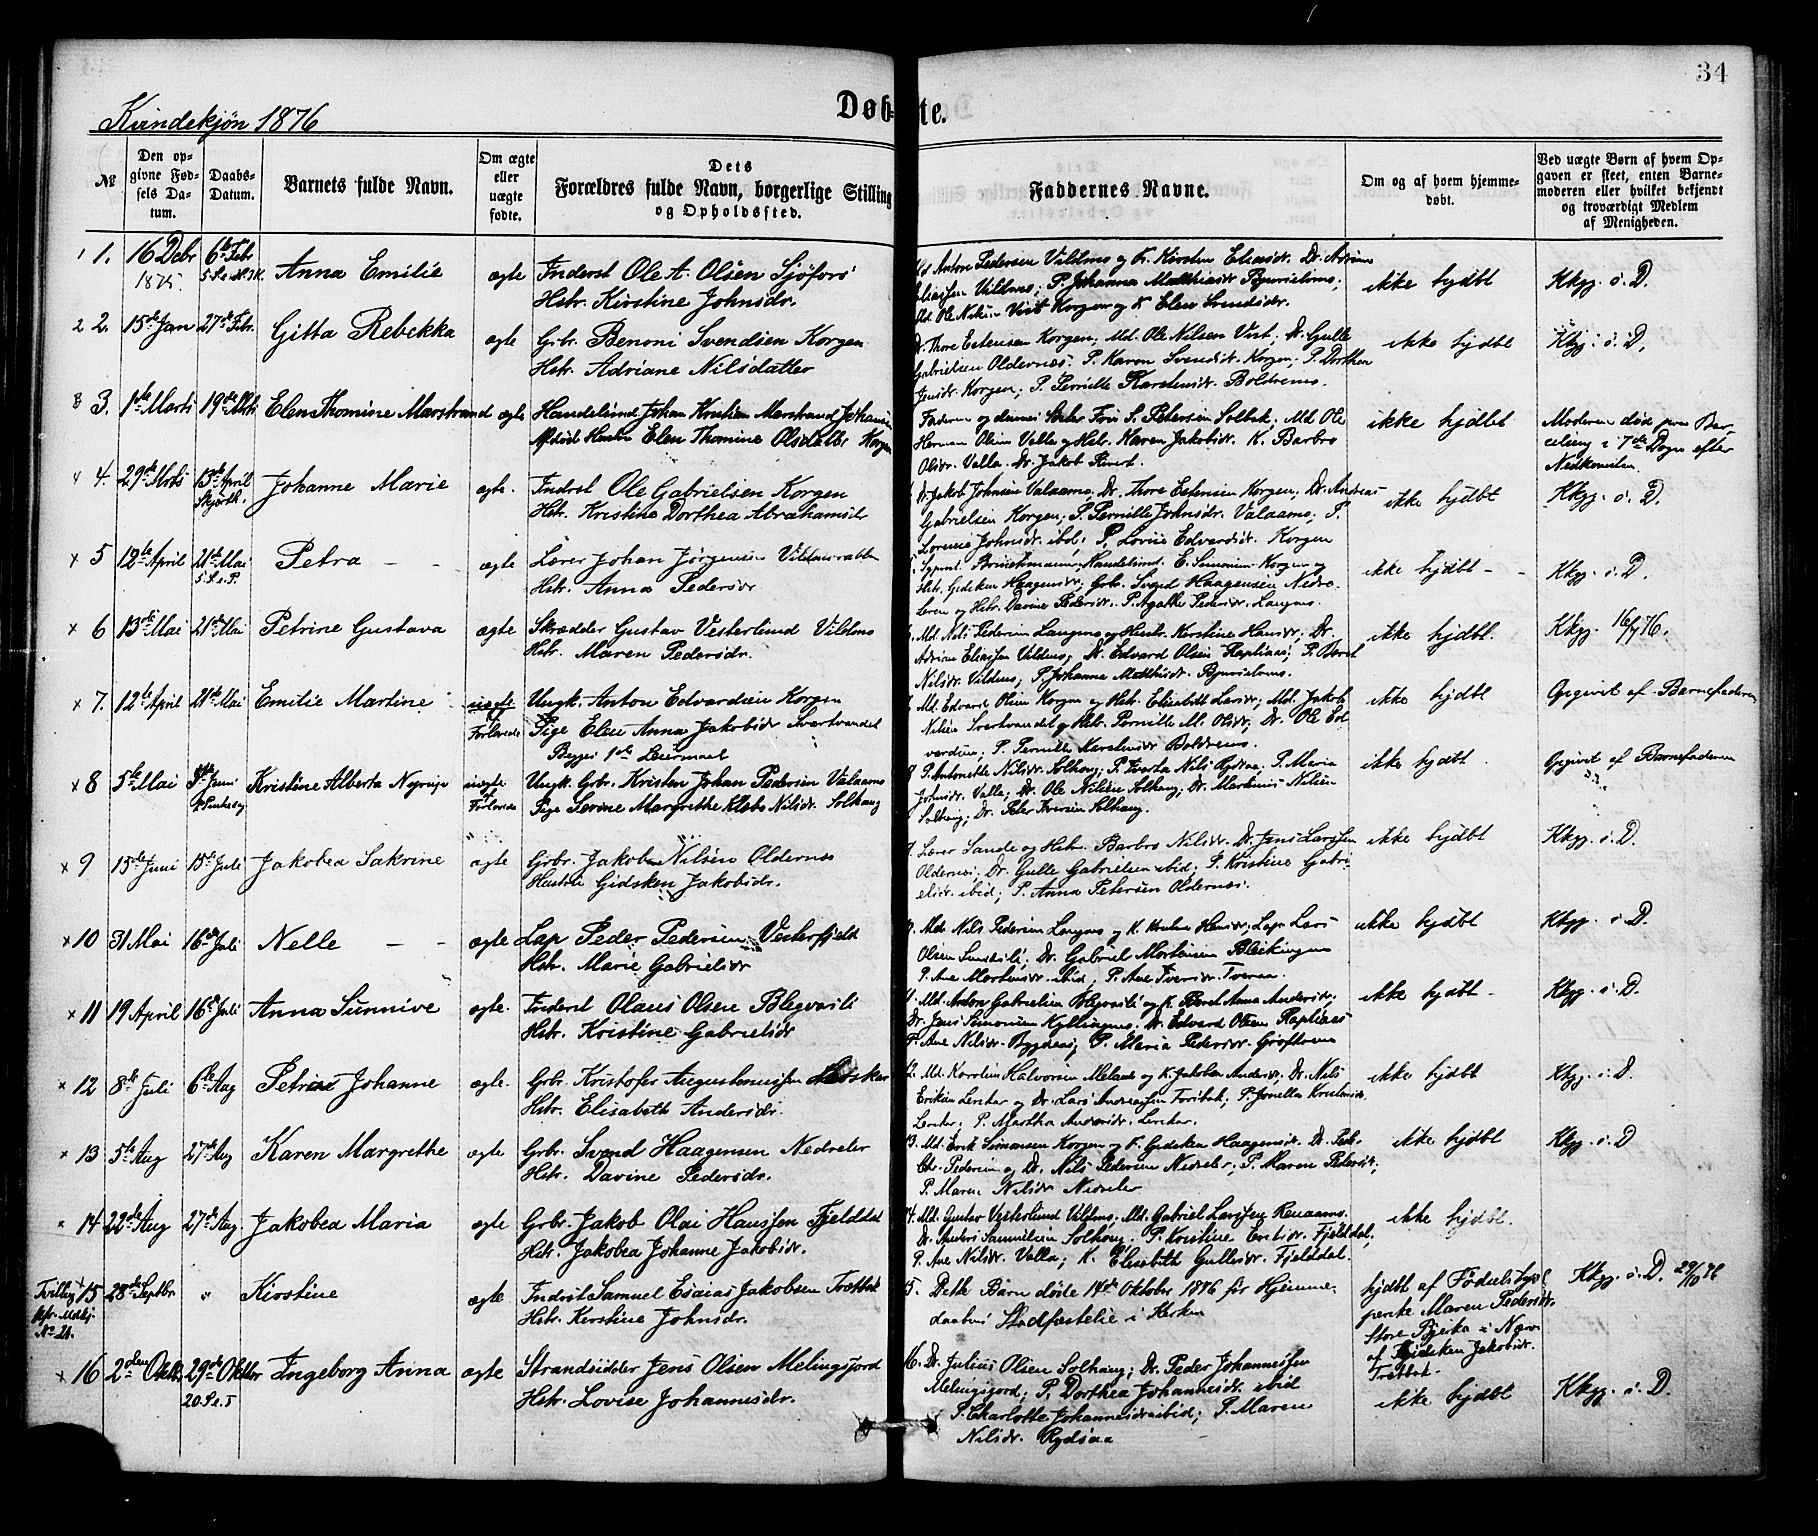 34
Kvindekjøn 1876
Døb-te.
№
Den op-
givne Fød-
sels Da-
tum.
Daabs-
Datum.
Barnets fulde Navn.
Om ægte
eller
uægte
fødte.
Dets
Forældres fulde Navn, borgerlige Stilling
og Opholdssted.
Faddernes Navne.
Om og af hvem hjemme-
døbt.
Ved uægte Børn af hvem Op-
gaven er skeet, enten Barne-
moderen eller hvilket bekjendt
og troværdigt Medlem
af Menigheden.
1. 16 Debr 6te Febr Anna Emilie ægte Inderst Ole A. Olsen Sjøfors
1875. Hstr. Kirstine Johnsdr.
Anton Pedersen Vildmo og K. Kirsten Eliasdr. Dr. Adrian
Eliassen Vildmo; P. Johanna
Vest Korgen og K. Elen Svendsdr.
ikke hjdbt Kkgg. s. D.
2. 15de Jan 27de Febr. Gitta Rebekka ægte Grbr. Benoni Svendsen Korgen
Hstr. Adriane Nilsdatter
Dr. Thore Estensen Korgen; Md. Ole Nilsen Vest; Dr. Gulle
Gabrielsen Oldernæs; P. Karen Svendsdr. Korgen; P. Dorthea
Jensdr. Korgen; P. Pernille Karstensdr. Boldremo.
ikke hjdbt Kkgg. s. D.
3. 1ste Marts 19de Marts Elen Thomine Marstrand ægte Handelsmd Johan Kristian Marstrand Johansen
Afdød Hustru Elen Thomine Olsdatter Korgen
Faderen og dennes
Herman Olsen Valla og Hstr. Maren Jakobsdr. K. Barbro
Olsdr. Valla. Dr. Jakob
ikke hjdbt Moderen død paa Bar-
selseng i 7de Døgn efter
Nedkomsten.
4. 29de Mrts 13de April Johanne Marie ægte. Indrst Ole Gabrielsen Korgen
Skjærth. Hstr. Kristine Dorthea Abrahamsdr
Dr. Jakob Johnsen Valaamo; Dr. Thore Estensen Korgen; Dr. Andreas
Gabrielsen Korgen; P. Pernille Johnsdr. Valaamo; P.
Lorense Johnsdr. ibd; P. Lovise Edvardsdr. Korgen
ikke hjdbt Kkgg. s. D.
5 12te April 21de Mai Petra ægte Lærer Johan Jørgensen Vildmorabben
5 S. e. P. Hstr. Anna Pedersdr
Handelsmd. E. Simonsen Korgen og
Hstr. Gidsken Haagensdr; Grbr. Svend Haagensen Nedre
Leren og Hstr. Davine Pedersdr. P. Agathe Pedersdr. Langmo.
ikke hjdbt - Kkgg. s. D.
6 13de Mai 21de Mai Petrine Gustava ægte Skrædder Gustav Vesterlund Vildmo
Hstr. Maren Pedersdr.
Md. Nils Pedersen Langmo og Hustr. Kerstine Hansdr; Dr.
Adrian Eliassen Vildmo; Dr. Edvard Olsen Rapliaas; P. Beret
Nilsdr. Vildmo; P. Johanna
ikke hjdbt. Kkgg. 16/7 76.
7. 12te April 21de Mai Emilie Martine uægte Ungk. Anton Edvardsen Korgen
Forlovede Pige Elen Anna Jakobsdr Svartvandet
Begges 1ste Leiermaal
Md. Edvard Olsen Korgen og Hstr. Elisabeth Larsdr; Md. Jakob
Nilsen Svartvandet og Hstr. Pernille M. Olsdr; Dr. Ole Ed-
vardsen; P. Pernille Karstensdr Boldremo
ikke hjdbt Opgivet af Barnefaderen
8 5te Mai Juni Kristine Alberta uægte Ungk. Grbr. Kristen Johan Pedersen Valaamo
Forlovede Pige Serine Margrethe Nilsdr. Solhaug
P. Antonette Nilsdr. Solhaug; P. Maria
Johnsdr. Valla; Dr. Ole Nilsen Solhaug; Dr. Martinus Nilsen
Solhaug; Dr. Peter Iversen Solhaug.
ikke hjdbt Opgivet af Barnefaderen
9 15de Juni 15de Juli Jakobea Sakrine ægte Grbr. Jakob Nilsen Oldernæs
Hustru Gidsken Jakobsdr.
Lærer Sande og Hstr. Barbro Nilsdr. Dr. Jens Larssen
Oldernæs; Dr. Gulle Gabrielsen ibid; P. Kristine Gabri-
elsdr. ibid; P. Anna Petersen Oldernæs.
ikke hjdbt Kkgg. s. D.
10 31 Mai 16de Juli Nelle ægte Lap Peder Pedersen Vesterfjeld
Hstr. Marie Gabrielsdr
Md. Nils Pedersen Langmo og K. Hansdr; Lap Lars
Olsen Dr. Gabriel Mortensen Bleikingmo
P. Ane Mortensdr. ibid; P. Ane Iversdr. Tveraa.
ikke hjdbt Kkgg. s. D.
11 19 April 16de Juli Anna Sunnive ægte. Inderst Olaus Olsen Blegvasli
Hstr. Kristine Gabrielsdr
Md. Anton Gabrielsen Blegvasli og K. Beret Anna Andersdr;
Dr. Jens Simonsen Kyllingmo; Dr. Edvard Olsen Rapliaas
P. Ane Nilsdr. Bygdaas; P. Maria Pedersdr.
ikke hjdbt - Kkgg. s. D.
12 8de Juli 6te Aug Petrine Johanne ægte. Grbr. Kristofer Augustinussen Lerskar
Hstr. Elisabeth Andersdr.
Md. Karolius Halvorsen og K. Jakobea Andersdr, Dr. Nils
Eriksen Lerskar og Dr. Lars Andreassen Forsbak; P. Jonetta Kristensdr
Lerskar; P. Martha Andersdr. Lerskar.
ikke hjdbt Kkgg. s. D.
13 5te Aug 27de Aug Karen Margrethe ægte Grbr. Svend Haagensen Nedreler
Hstr. Davine Pedersdr.
13. Md. Erik Simonsen Korgen og K. Gjdsken Haagensdr. Dr. Peder
Chr. Pedersen og Dr. Nils Pedersen Nedreler; P. Maren Pedersdr;
P. Maren Nilsdr Nedreler
ikke hjdbt Kkgg. s. D
14 22de Aug 27de Aug. Jakobea Maria ægte Grbr. Jakob Olai Hanssen Fjelddal
Hstr. Jakobea Johanne Jakobsdr.
14. Md. Gustav Vesterlund Vildmo; Md. Gabriel Larssen Renaamo.
Dr. Anders Samuelsen Solhaug. P. Kristine Fjelddal,
P. Ane Nilsdr. Valla; K. Elisabeth Gullesdr. Fjelddal.
ikke hjdbt.
Tvilling 15 28de Septbr " Kirstine ægte Indrst Samuel Esaias Jakobsen Trætbak
Kfr. Mdkj. Hstr. Kerstine Johnsdr.
No 21.
15. Dette Barn døde 14de Oktober 1876 før Hjemme-
daabens Stadfæstelse i Kirken
hjdbt af Fødselshjel-
perske Maren Pedersdr.
Store Bjerka i Nærv
af Gjidsken Jakobsdr.
Trætbak.
Kkgg. s. D. 29/10 76
16 2den Oktbr 29de Oktbr Ingeborg Anna ægte Strandsidder Jens Olsen Melingsjord
20. S e. T Hstr. Lovise Johannesdr.
16. Dr. Julius Olsen Solhaug; Dr. Peder Johannessen
Melingsjord; P. Dorthea Johannesdr. ibid
P. Charlotte Johannesdr ibid; P. Maren
Nilsdr. Rydsaa
ikke hjdbt Kkgg. s. D.